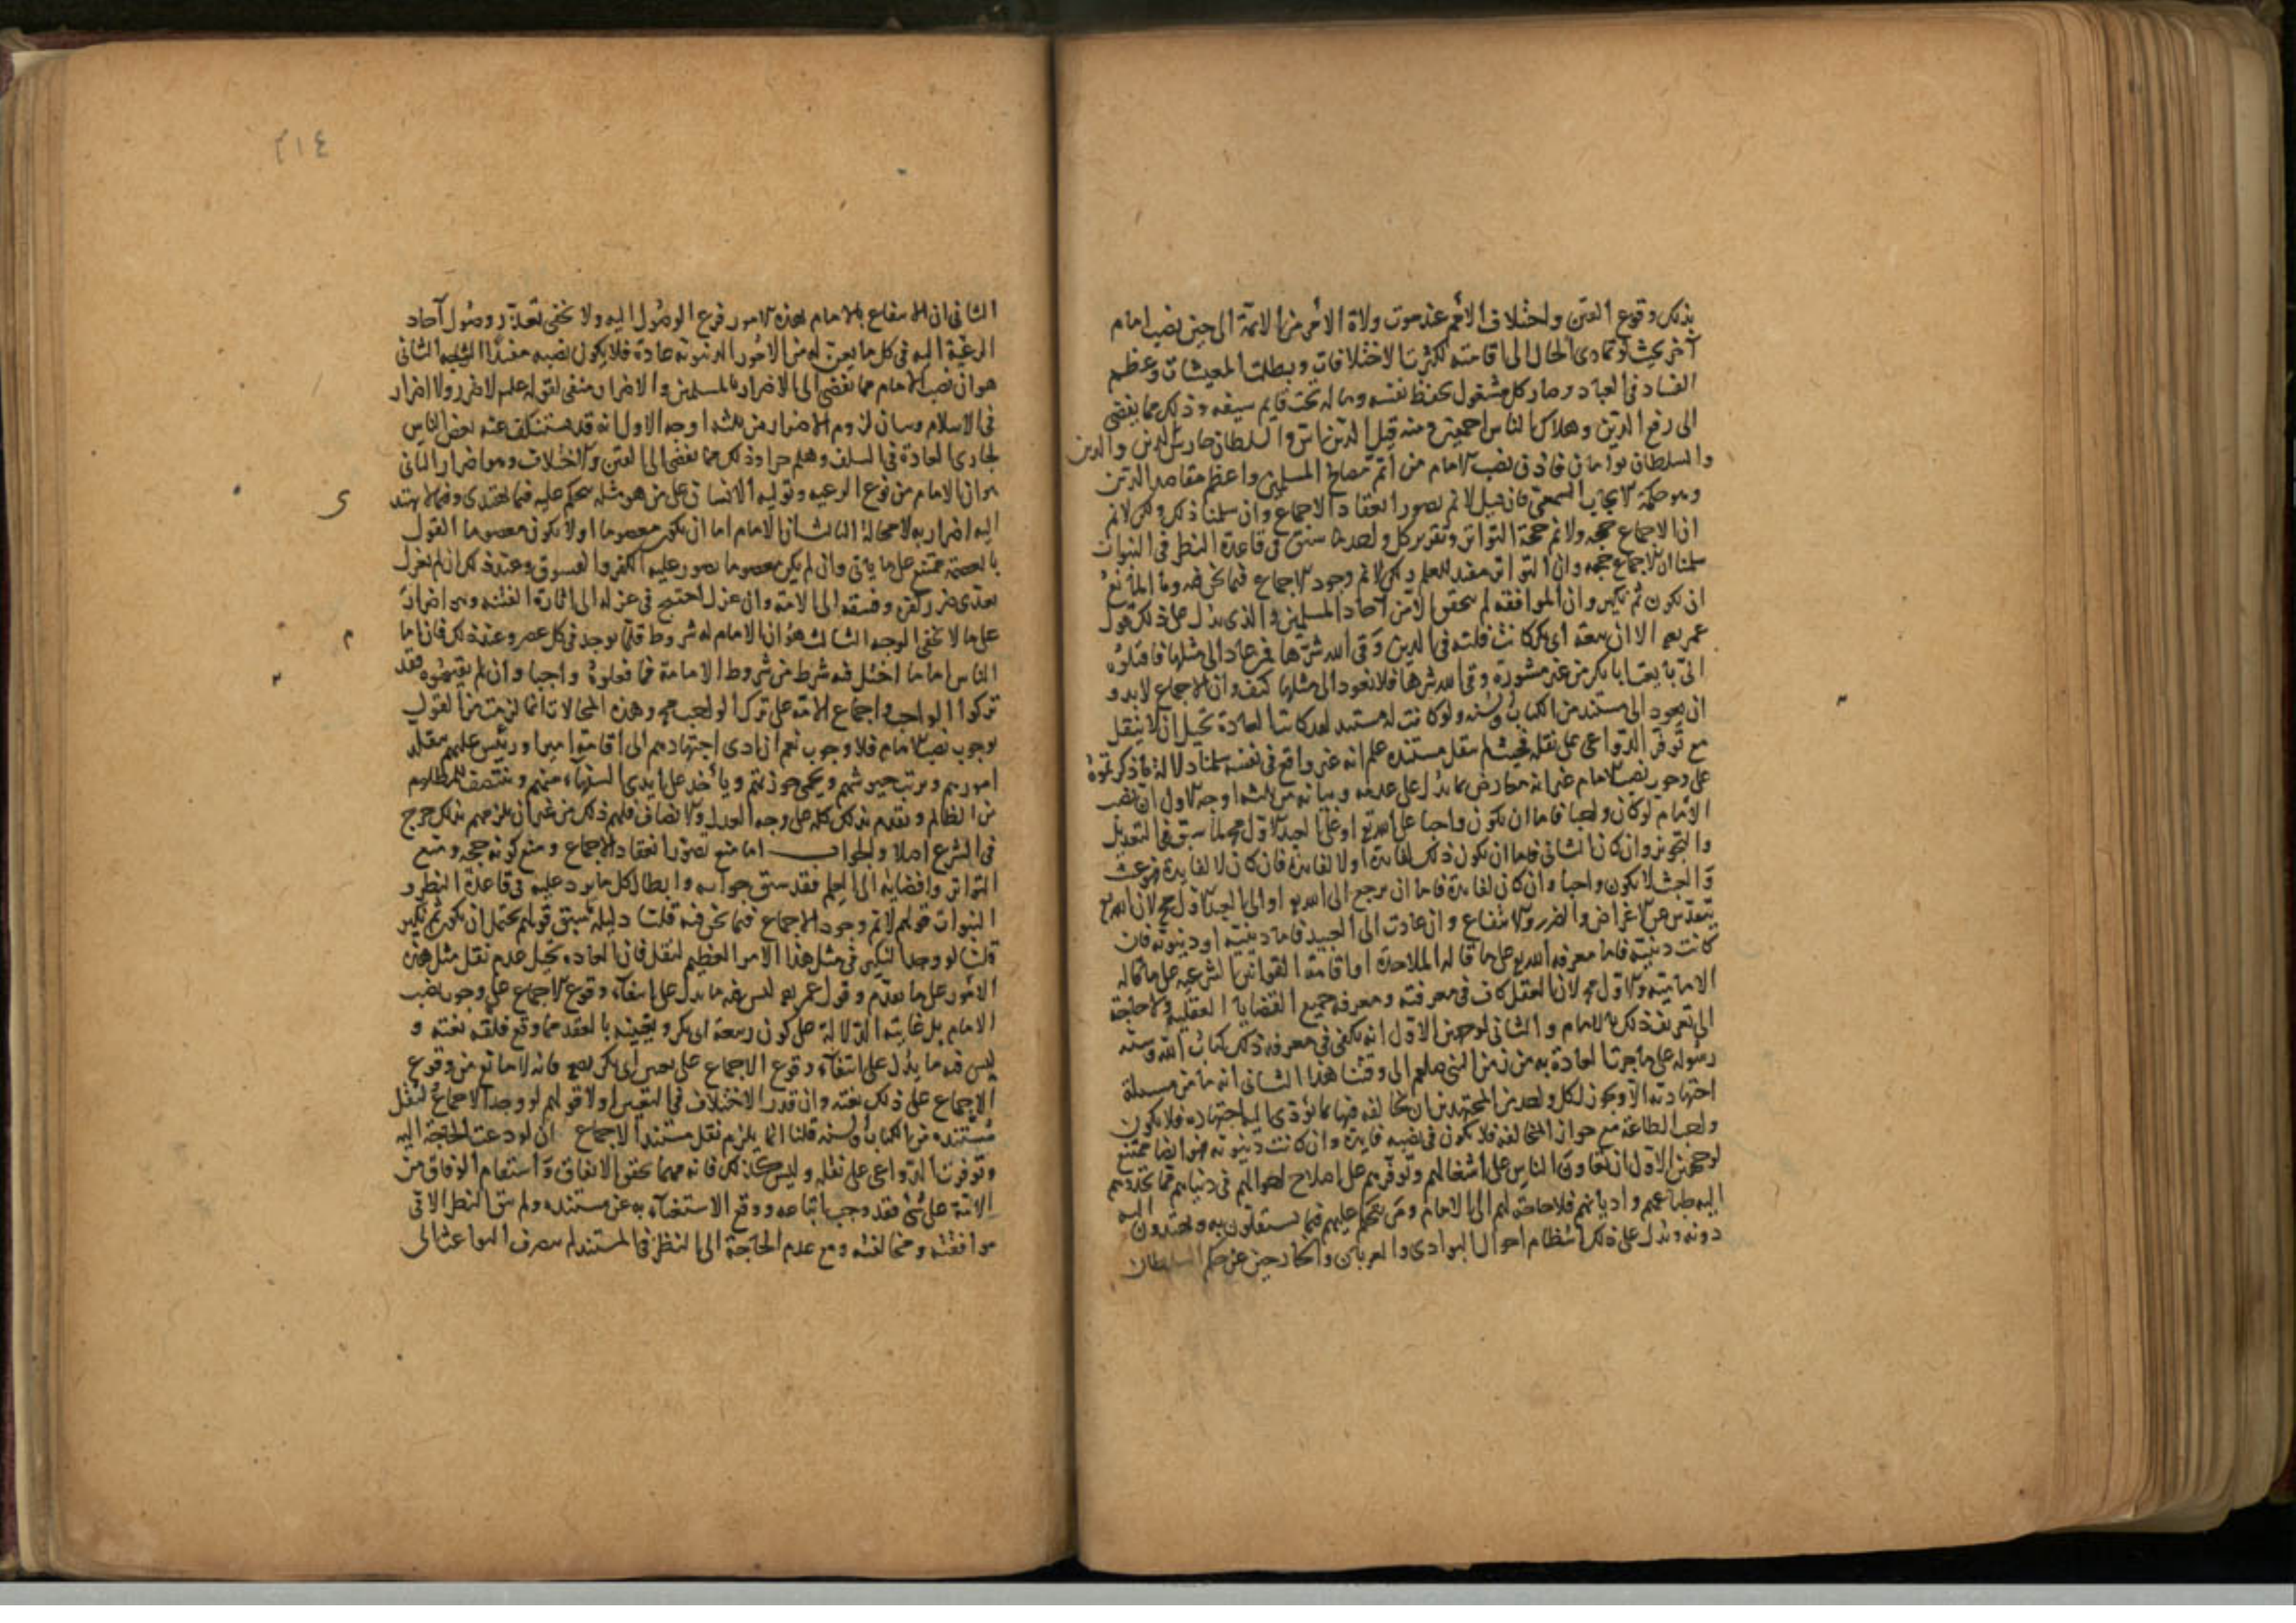 بذلك وقوع الفتن واختلاف الأمم عند موت ولاة الأمر من الائمة الى حين نصب امام
آخر بحيث لو تمادى الحال الى اقامته لكثرت الاختلافات وبطلت المعيشات وعظم
الفساد فى العباد وصار كل مشغول بحفظ نفسه وماله تحت قايم سيفه وذلك مما يفضى
الى رفع الدين وهلاك الناس اجمعين ومنه قيل الدين اس والسلطان حارس الدين والدين
والسلطان توامان فاذن نصب الامام من اتم مصالح المسلمين واعظم مقاصد الدين
وهو حكمة الايجاب السمعى فان قيل لا نم تصور انعقاد الاجماع وان سلمنا ذلك ولكن لا نم
ان الاجماع حجه ولا نم صحة التواتر وتقرير كل واحد ما سبق فى قاعدة النظر فى النبوات
سلمنا ان الاجماع حجه وان التواتر مفيد للعلم ولكن لا نم وجود الاجماع فيما نحن فيه وما المانع
ان يكون ثم نكير وان الموافقه لم تتحقق الا من آحاد المسلمين والذى يدل على ذلك قول
عمر رضه الا ان بيعة ابى بكر كانت فلتة فى الدين وقى الله شرها فمن عاد الى مثلها فاقتلوه
اى بايعت ابا بكر من غير مشورة وقى الله شرها فلا نعود الى مثلها كيف وان الاجماع لابد و
ان يعود الى مستند من الكتاب والسنه ولو كانت له مستند لقد كانت العادة تحيل ان لا ينقل
مع توفر الدواعى على نقله فحيث لم ينقل مستنده علم انه غير واقع فى نفسه سلمنا دلالة ما ذكرتموه
على وجوب نصب الامام غير انه معارض بما يدل على عدمه وبيانه من ثلثه اوجه الاول ان نصب
الامام لو كان واجبا فاما ان يكون واجبا على الله تع او على العبد الاول مح لما سبق فى التعديل
والتجويز وان كان الثانى فاما ان يكون ذلك لفايدة او لا لفايدة فان كان لا لفايدة فهو عبث
والعبث لا يكون واجبا وان كان لفايدة فاما ان يرجع الى الله تع او الى العبد الاول مح لان الله تع
يتقدس عن الاغراض والضرر والانتفاع وان عادت الى العبيد فاما دينية او دنيوية فان
كانت دينية فاما معرفة الله تع على ما قاله الملاحدة او اقامة القوانين الشرعيه على ما قاله
الامامية والاول مح لان العقل كاف فى معرفته ومعرفة جميع القضايا العقلية ولا حاجة
الى تعريف ذلك بالامام والثانى لوجهين الاول انه يكفى فى معرفه ذلك كتاب الله وسنة
رسوله على ما جرت العادة به من زمن النبى صلعم الى وقتنا هذا الثانى انه ما من مسلة
اجتهادية الا ويجوز لكل واحد من المجتهدين ان يخالفه فيها بما يؤدى اليه اجتهاده فلا يكون
واجب الطاعة مع جواز المخالفة فلا يكون فى نصبه فايدة وان كانت دنيوية فهو ايضا ممتنع
لوجهين الاول ان تعاون الناس على اشغالهم وتوفرهم على اصلاح احوالهم فى دنياهم مما تحدوهم
اليه طباعهم واديانهم فلا حاجة لهم الى الامام ومن يتحكم عليهم فيما يستقلون به ويهتدون اليه
دونه ويدل على ذلك انتظام احوال البوادى والعربان والخارجين عن حكم السلطان
٢١٤
الثانى ان الانتفاع بالامام لهذه الامور فرع الوصول اليه ولا يخفى تعذر وصول آحاد
الرعية اليه فى كل ما يعن له من الامور الدنيوية عادة فلا يكون نصبه مفيدا الشبهه الثانى
هو ان نصب الامام مما يفضى الى الاضرار بالمسلمين والاضرار منفى لقوله علم لا ضرر ولا اضرار
فى الاسلام وبيان لزوم الاضرار من ثلثه اوجه الاول انه قد يستنكف عنه بعض الناس
لجارى العادة فى السلف وهلم جرا وذلك مما يفضى الى الفتن والاختلاف وهو اضرار الثانى
هو ان الامام من نوع الرعيه وتوليه الانسان على من هو مثله يتحكم عليه فيما يهتدى وفيما لا يهتد
ى
اليه اضرار به لا محالة الثالث ان الامام اما ان يكون معصوما او لا يكون معصوما القول
بالعصمة ممتنع على ما ياتى وان لم يكن معصوما تصور عليه الكفر والفسوق وعند ذلك ان لم يعزل
تعدى ضرر كفره وفسقه الى الامة وان عزل احتيج فى عزله الى اثارة الفتنه وهو اضرار
على ما لا يخفى الوجه الثالث هو ان الامام له شروط قلما يوجد فى كل عصر وعند ذلك فان اقا
م
الناس اماما اختل فيه شرط من شروط الامامة فما فعلوه واجبا وان لم يقيموه فقد
تركوا الواجب واجماع الامة على ترك الواجب مح وهذه المحالات انما لزمت من القول
بوجوب نصب الامام فلا وجوب نعم ان ادى اجتهادهم الى اقامة امير او رئيس عليهم يتقلد
امورهم ويرتب جيوشهم ويحمى حوزتهم وياخذ على ايدى السفهاء منهم وينتصف للمظلوم
من الظالم ويقوم بذلك كله على وجه العدل والانصاف فلهم ذلك من غير ان يلزمهم بذلك حرج
فى الشرع اصلا والجواب اما منع تصور انعقاد الاجماع ومنع كونه حجه ومنع
التواتر وافضايه الى العلم فقد سبق جوابه وابطال كل ما يرد عليه فى قاعدة النظر و
النبوات قولهم لا نم وجود الاجماع فيما نحن فيه قلنا دليله سبق قولهم يحتمل ان يكون ثم نكير
قلنا لو وجد النكير فى مثل هذا الامر العظيم لنقل فان العادة تحيل عدم نقل مثل هذه
الامور على ما تقدم وقول عمر رضه ليس فيه ما يدل على انتفاء وقوع الاجماع على وجوب نصب
الامام بل غايته الدلالة على كون بيعة ابى بكر وتعيينه بالعقد مما وقع فلتة بغتة و
ليس فيه ما يدل على انتفاء وقوع الاجماع على تعيين ابى بكر رضه فانه لا مانع من وقوع
الاجماع على ذلك بغتة وان قدر الاختلاف فى التعيين اولا قولهم لو وجد الاجماع لنقل
مستنده من الكتاب والسنه قلنا انما يلزم نقل مستند الاجماع ان لو دعت الحاجة اليه
وتوفرت الدواعى على نقله وليس كذلك فانه مهما تحقق الاتفاق واستقام الوفاق من
الامة على شى فقد وجب اتباعه ووقع الاستغناء به عن مستنده ولم يبق النظر الا فى
موافقته ومخالفته ومع عدم الحاجة الى النظر فى المستند لم تنصرف البواعث الى